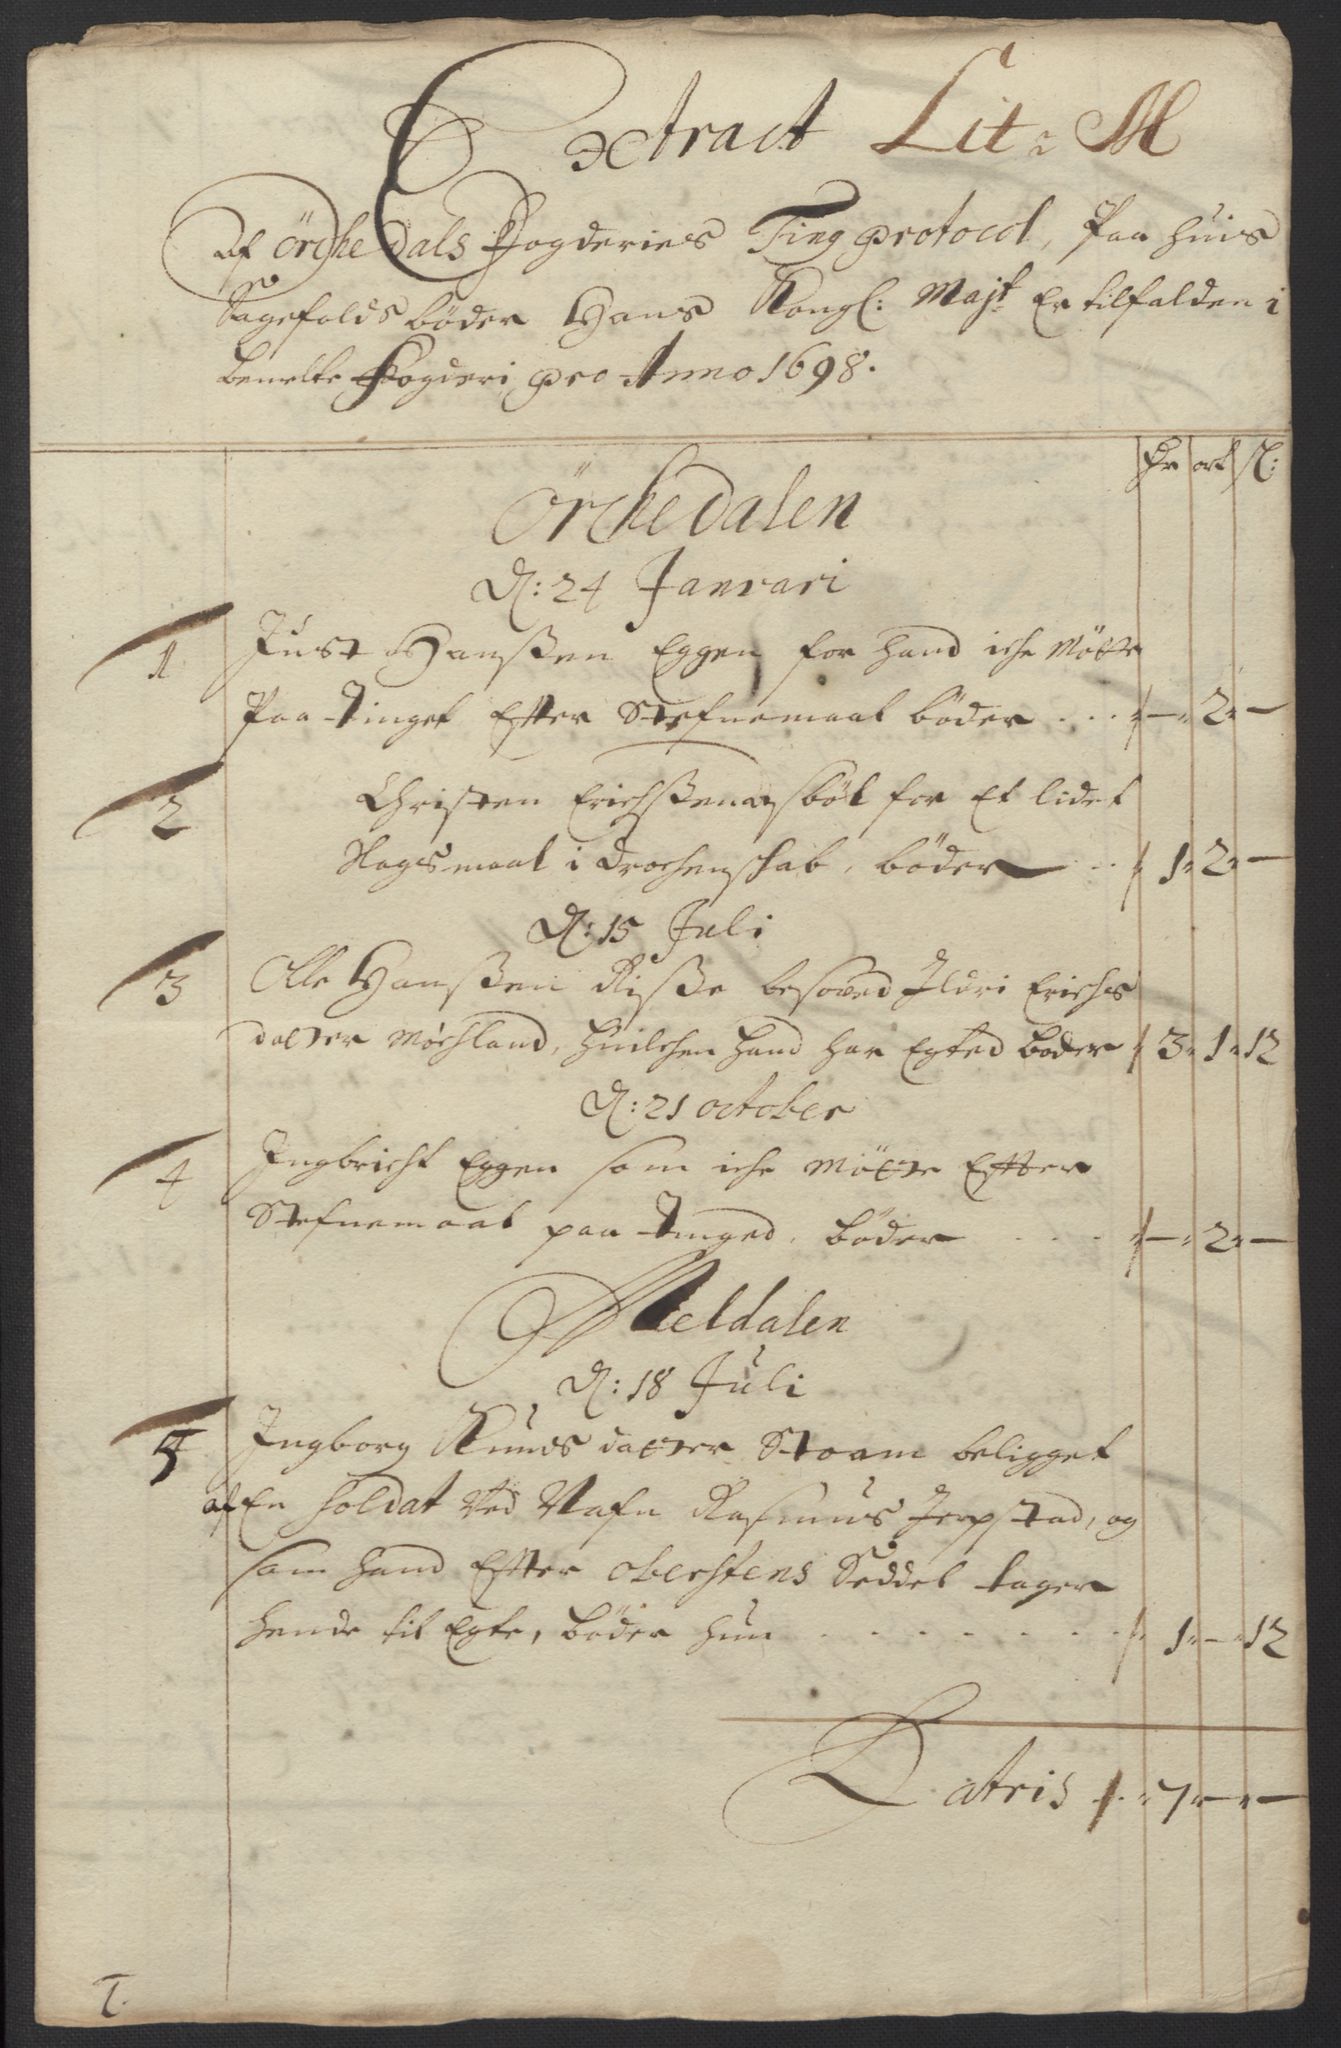 Extract Lit: M
Af Örche dals Fogderies Ting protocol, Paa huis
Sagefalds bøder Hans Kongl: Majt Er tilfalden i
benelte Fogderi pro Anno 1698.
Dr ort sl:
Örchedalen
D: 24 Janvari
1 Just Hanßen Eggen for hand iche Mötte
Paa Tinget Efter Stefnemaal böder . . . — 2 —
2 Christen Erichßen for Et lidet
Slagsmaal i Drochenschab, böder . . 1 2 —
D: 15 Juli
3 Olle Hanßen Riße besoved Ildri Erichs
datter Möchland, huilchen hand har Egted Böder 3 1 12
D: 21 october
4 Ingbricht Eggen som iche Mötte Effter
Stefnemaal paa Tinged, böder . . . — 2 —
Meldalen
D: 18 Juli
5 Ingborg Knuds datter Stoam beligget
af En Soldat Ved Nafn Rasmus Jerpstad, og
som hand Effter oberstens Seddel tager
hende til Egte, böder hun . . . . . . . . 1 — 12
Latris 7 — —
T.